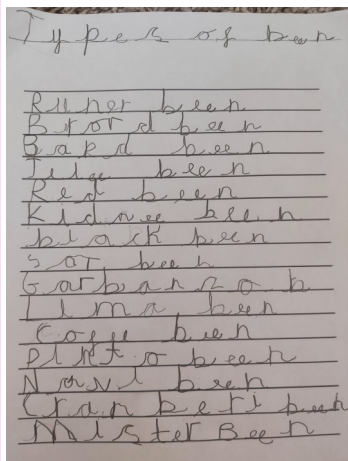 Types of been
Runer been
Brord been
Bapd been
Jele been
Red been
Kidnee been
black been
Soy been
Garbanzo b
Lima been
Cofee been
Pinto been
Navi been
Cranberi been
Mister Been